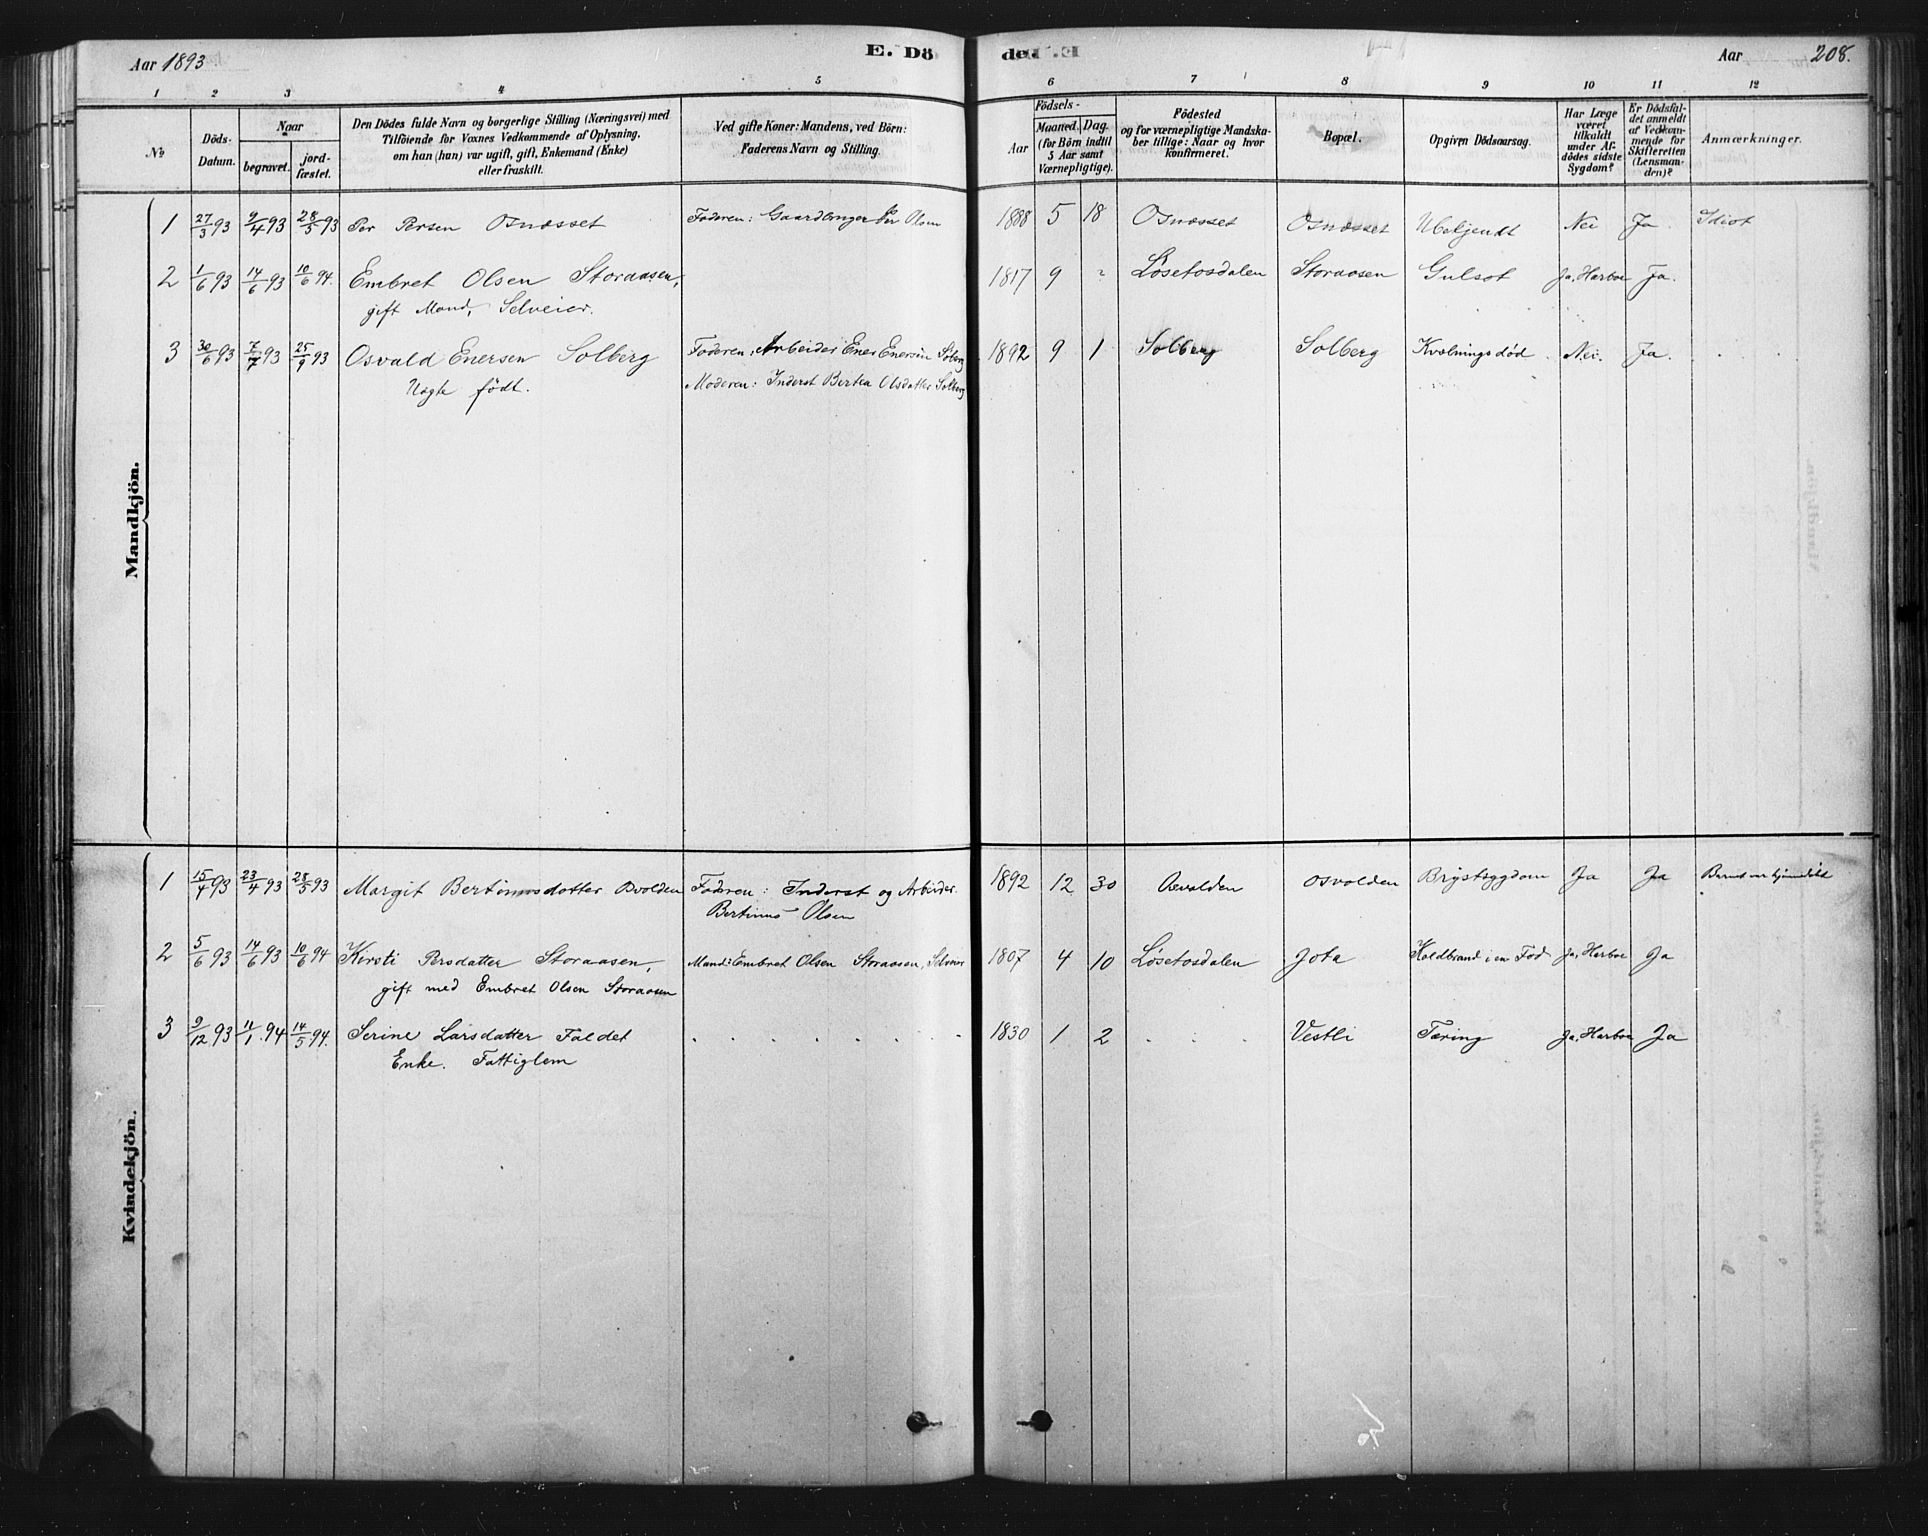 Aar 1893
E. Dö
den
Aar 208.
1 2 3 4 5 6 7 8 9 10 11 12
№
Döds-
Datum.
Naar
begravet.
jord-
fæstet.
Den Dödes fulde Navn og borgerlige Stilling (Næringsvei) med
Tilföiende for Voxnes Vedkommende af Oplysning,
om han (hun) var ugift, gift, Enkemand (Enke)
eller fraskilt.
Ved gifte Koner: Mandens, ved Börn:
Faderens Navn og Stilling.
Födsels-
Aar
Maaned. Dag.
(for Börn indtil
5 Aar samt
Værnepligtige).
Födested
og for værnepligtige Mandska-
ber tillige: Naar og hvor
konfirmeret.
Bopæl.
Opgiven Dödsaarsag.
Har Læge
været
tilkaldt
under Af-
dödes sidste
Sygdom?
Er Dödsfal-
det anmeldt
af Vedkom-
mende for
Skifteretten
(Lensman-
den)?
Anmærkninger.
Mandkjön.
1 27/3 93 9/4 93 28/5 93 Per Persen Osnæsset Faderen: Gaardbruger Per Olsen 1888 5 18 Osnæsset Osnæsset Ubekjendt Nei Ja. Idiot
2 1/6 93 14/6 93 10/6 94. Embret Olsen Storaasen, 1817 9 Løsetosdalen Storaasen Gulsot Ja, Harboe Ja.
gift Mand, Selveier.
3 30/6 93 7/7 93 25/9 93 Osvald Enersen Solberg Faderen: Arbeider Ener Enersen Solberg 1892 9 1 Solberg Solberg Kvælningsdød Nei. Ja.
Uægte født. Moderen: Inderst Bertea Olsdatter Solberg
Kvindekjön.
1 15/4 93 23/4 93 28/5 93 Margit Bertinusdatter Osvolden Faderen: Inderst og Arbeider 1892 12 30 Osvolden Osvolden Brystsygdom Ja Ja Barnet var hjemmedøbt
Bertinus Olsen
2 5/6 93 14/6 93 10/6 94 Kirsti Persdatter Storaasen, Mand: Embret Olsen Storaasen, Selveier 1807 4 10 Løsetosdalen Jota Koldbrand i en Fod Ja, Harboe Ja
gift med Embret Olsen Storaasen
3 9/12 93 11/1 94 14/5 94. Serine Larsdatter Faldet 1830 1 2 Vestli Tæring Ja, Harboe Ja
Enke. Fattiglem